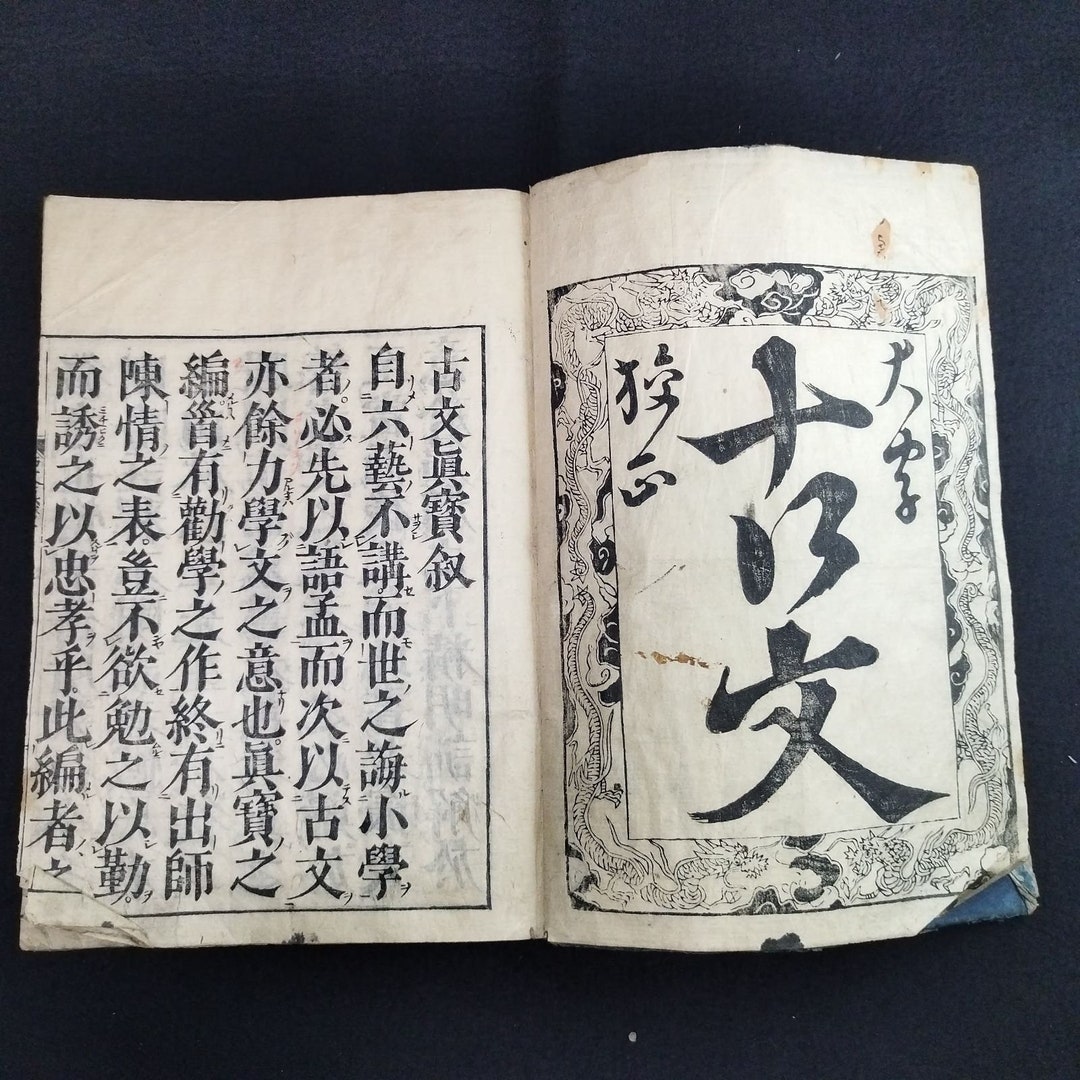 大字
古文
挍正
古文眞寶叙
自六藝不講。而世之誨小學
者。必先以語孟而次以古文
亦餘力學文之意也。眞寶之
編。首有勸學之作終有出師
陳情之表。豈不欲勉之以勤。
而誘之以忠孝乎。此編者之